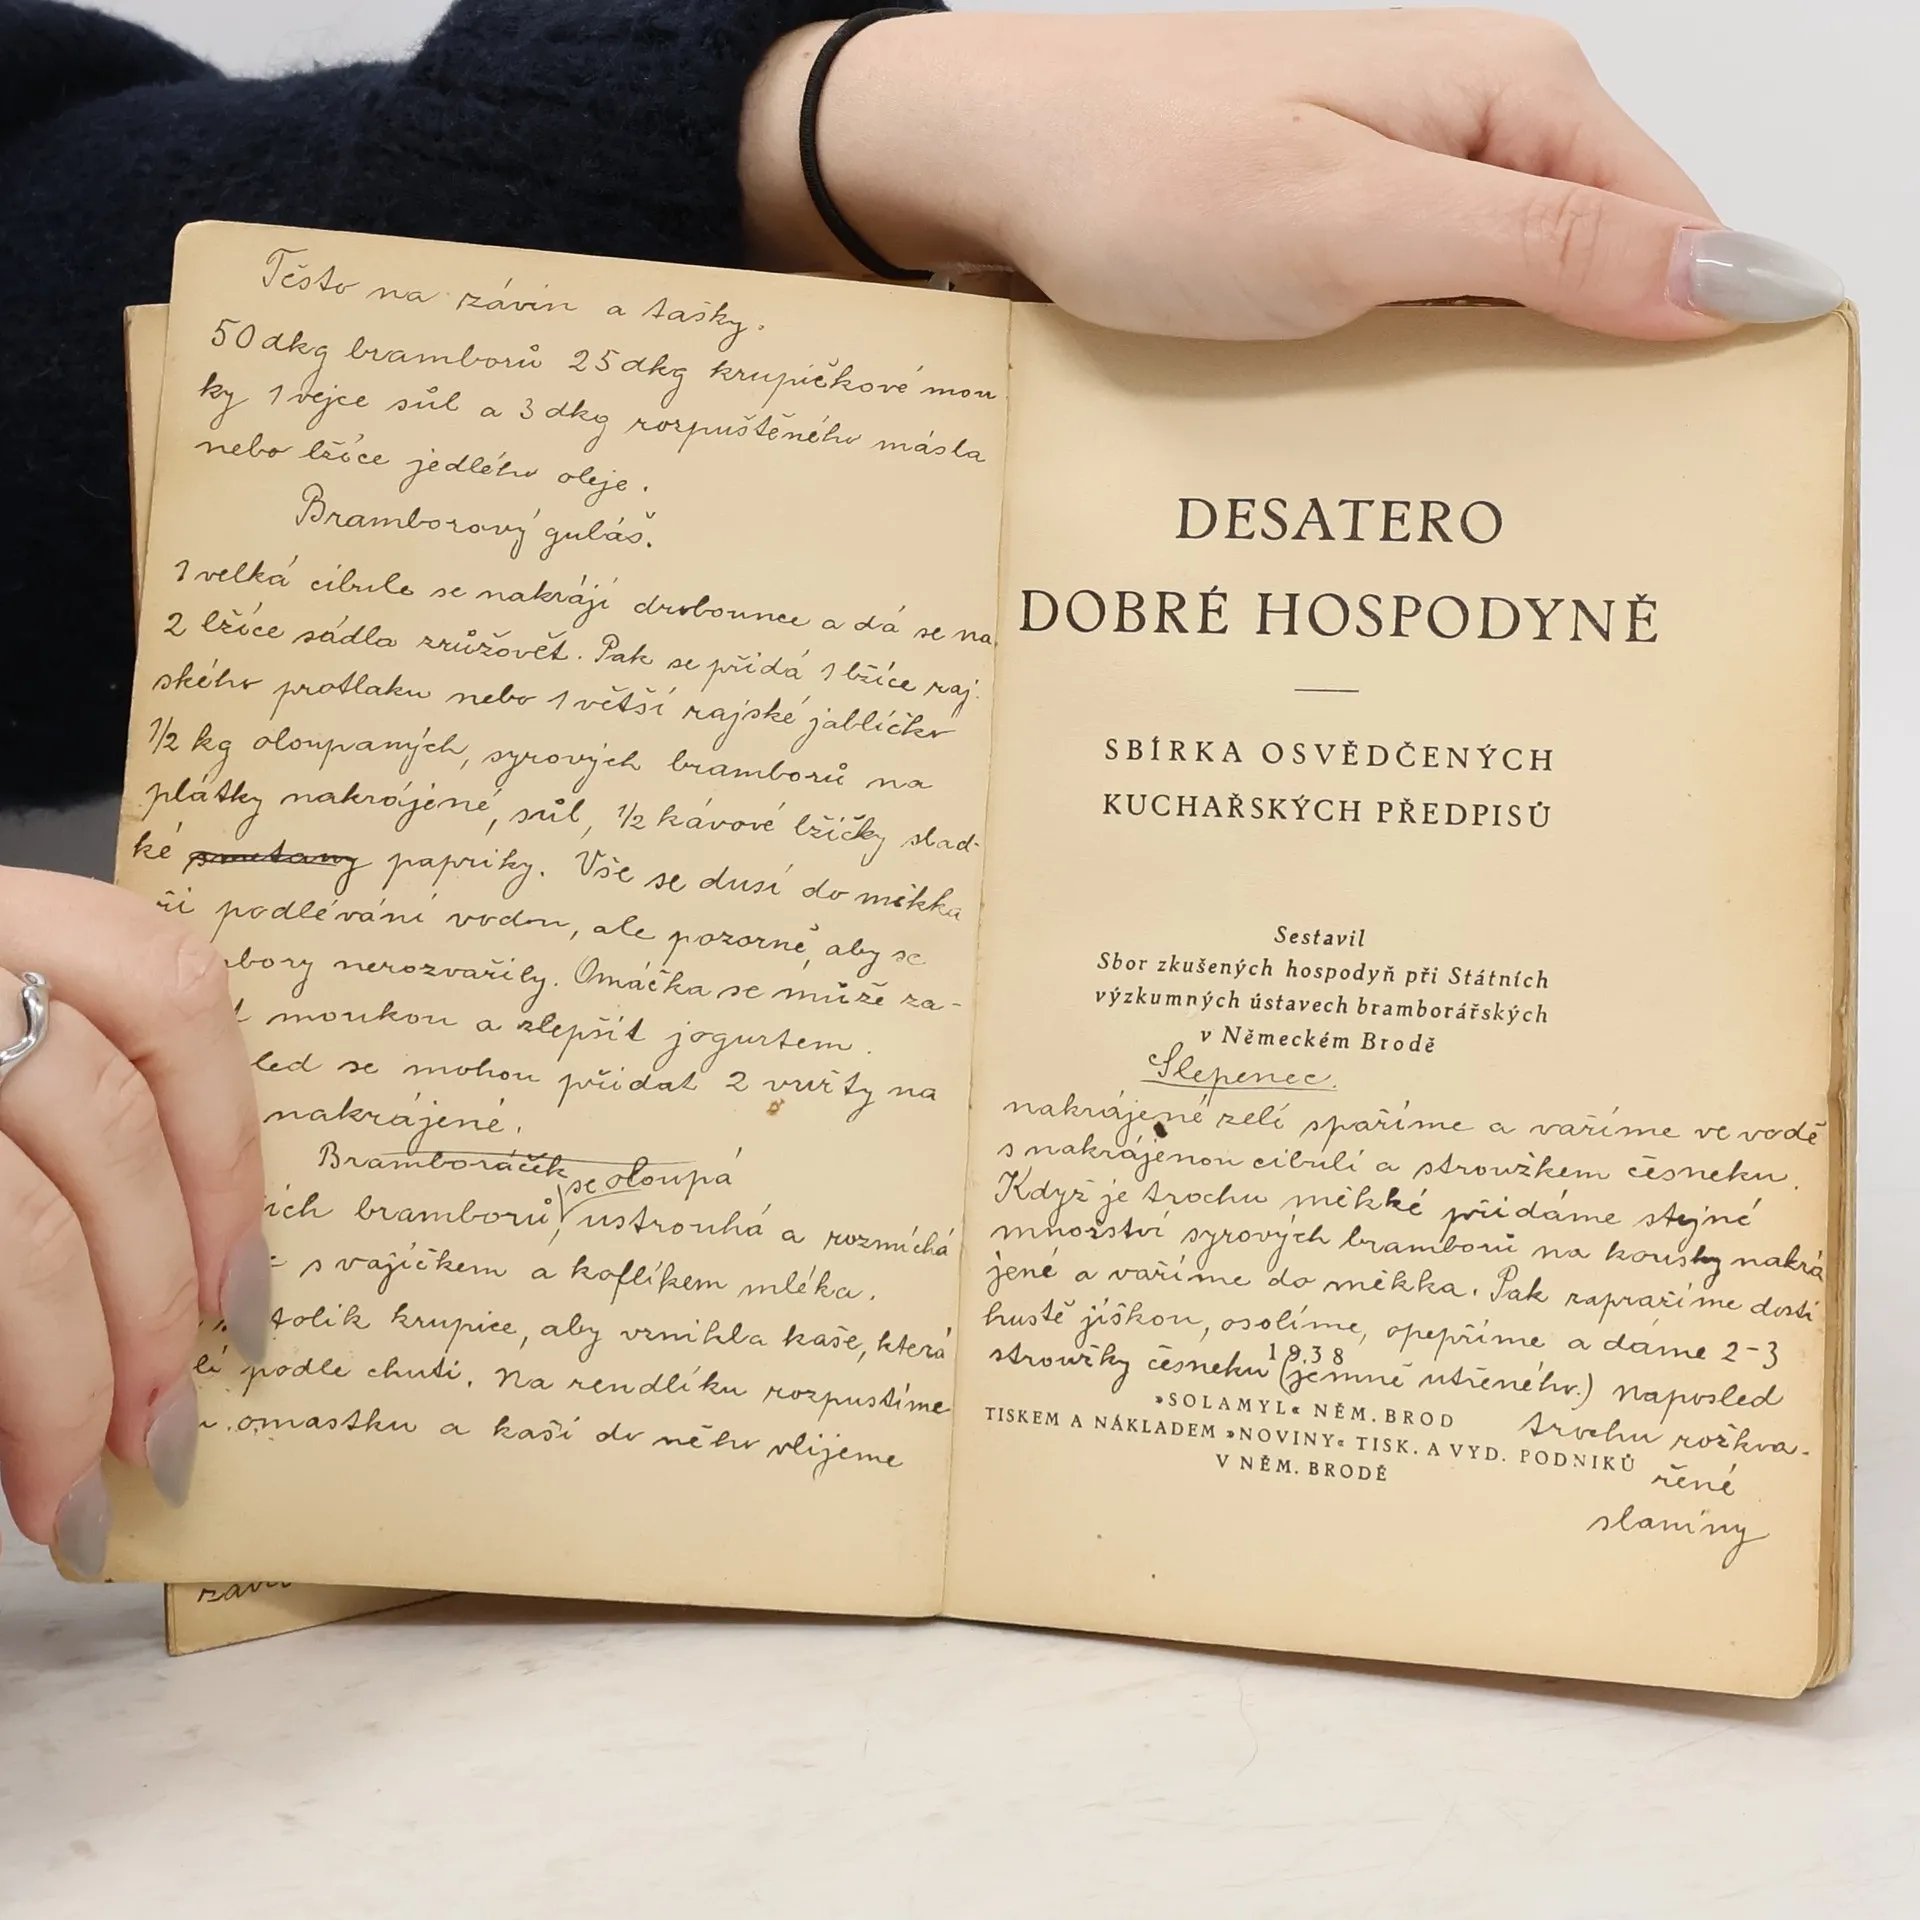 Těsto na závin a tašky.
50 dkg bramborů 25 dkg krupičkové mou
ky 1 vejce sůl a 3 dkg rozpuštěného másla
nebo lžíce jedlého oleje.
Bramborový guláš.
1 velká cibule se nakrájí drobounce a dá se na
2 lžíce sádla zrůžovět. Pak se přidá 1 lžíce raj-
ského protlaku nebo 1 větší rajské jablíčko
1/2 kg oloupaných, syrových bramborů na
plátky nakrájené, sůl, 1/2 kávové lžičky slad-
ké smetany papriky. Vše se dusí do měkka
ři podlévání vodou, ale pozorně, aby se
mbory nerozvařily. Omáčka se může za-
t moukou a zlepšit jogurtem.
led se mohou přidat 2 vuřty na
nakrájené.
Bramboráček
se oloupá
ích bramborů, ustrouhá a rozmíchá
s vajíčkem a koflíkem mléka.
tolik krupice, aby vznikla kaše, která
lí podle chuti. Na rendlíku rozpustíme
omastku a kaši do něho vlijeme
záv
DESATERO
DOBRÉ HOSPODYNĚ
SBÍRKA OSVĚDČENÝCH
KUCHAŘSKÝCH PŘEDPISŮ
Sestavil
Sbor zkušených hospodyň při Státních
výzkumných ústavech bramborářských
v Německém Brodě
Slepenec.
nakrájené zelí spaříme a vaříme ve vodě
s nakrájenou cibulí a stroužkem česneku.
Když je trochu měkké přidáme stejné
množství syrových bramborů na kousky nakrá
jené a vaříme do měkka. Pak zapražíme dosti
hustě jíškou, osolíme, opepříme a dáme 2-3
stroužky česneku (jemně utřeného.) naposled
trochu rožkva-
řené
slaniny
1938
»SOLAMYL« NĚM. BROD
TISKEM A NÁKLADEM »NOVINY« TISK. A VYD. PODNIKŮ
V NĚM. BRODĚ